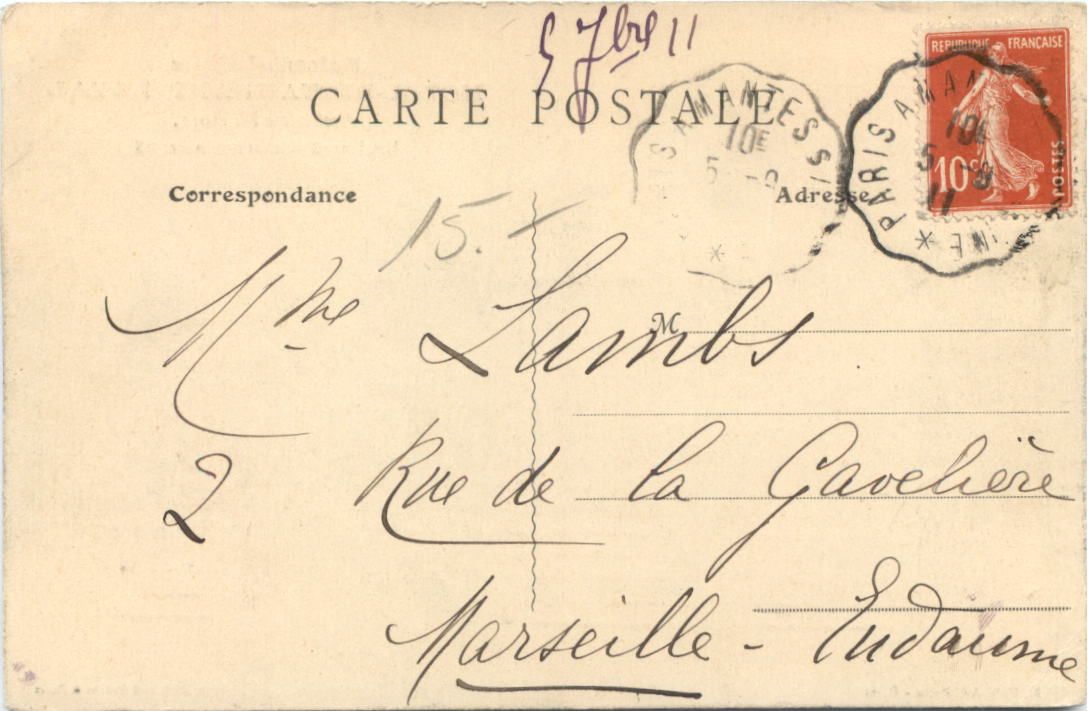 5 7bre 11
CARTE POSTALE
REPUBLIQUE FRANÇAISE
10c
POSTES
PARIS A MAN
10E
5 -9
11
IS A MANTES S
10E
5 -9
Correspondance
Adresse
15.-
Mme Lambs
M
2 Rue de la Gavelière
Marseille - Endaume